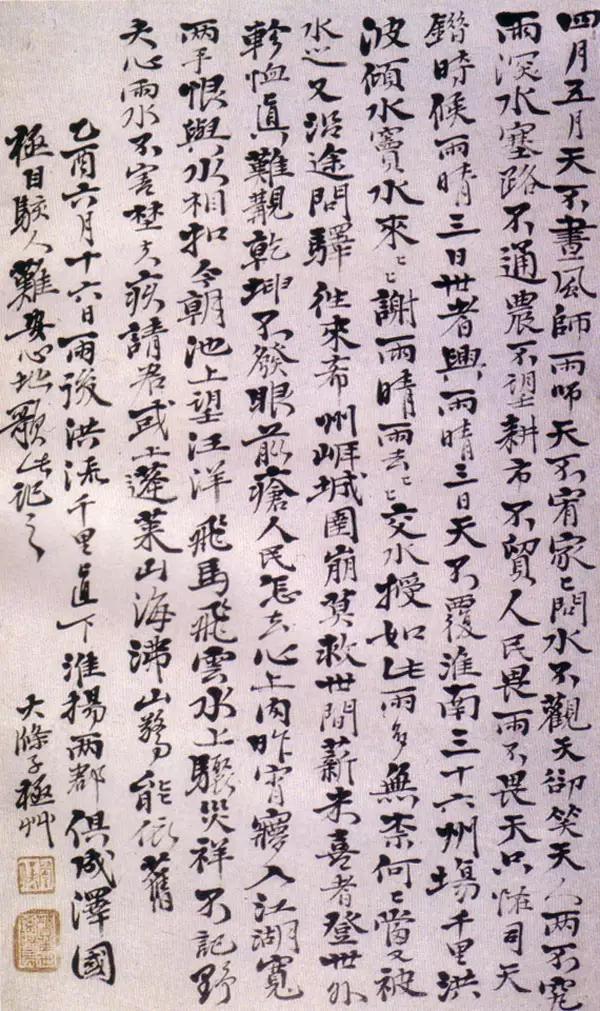 四月五月天不晝風師雨師天不宥家々問水不觀天卻笑天人兩不究
雨深水塞路不通農不望耕市不貿人民畏雨不畏天只怪司天
時候雨晴三日世者興雨晴三日天不覆淮南三十六州塲千里洪
波傾水竇水來々謝雨晴雨去々交水授如此雨多無柰何々當又被
水又沿途問驛往來希州崕城圍崩莫救世間薪未喜者登世外
軫恤真難覯乾坤不發眼前瘡人民怎去心上肉昨宵寢入江湖寬
兩手恨與水相扣今朝池上望汪洋飛馬飛雲水上驟災祥不記野
夫心雨水不害埜夫疚請君或上蓬萊山海沸山能依舊
乙酉六月十六日雨後洪流千里直下淮揚兩郡俱成澤國
極目駭人難安心地歌此記之
大滌子極艸